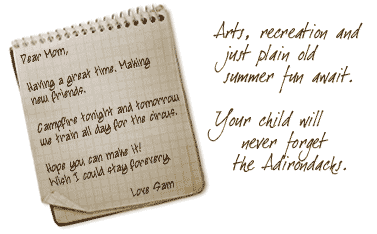 Dear Mom,
Having a great time. Making
new friends.
Campfire tonight and tomorrow
we train all day for the circus.
Hope you can make it!
Wish I could stay forever.
Love Sam
Arts, recreation and
just plain old
summer fun await.
Your child will
never forget
the Adirondacks.